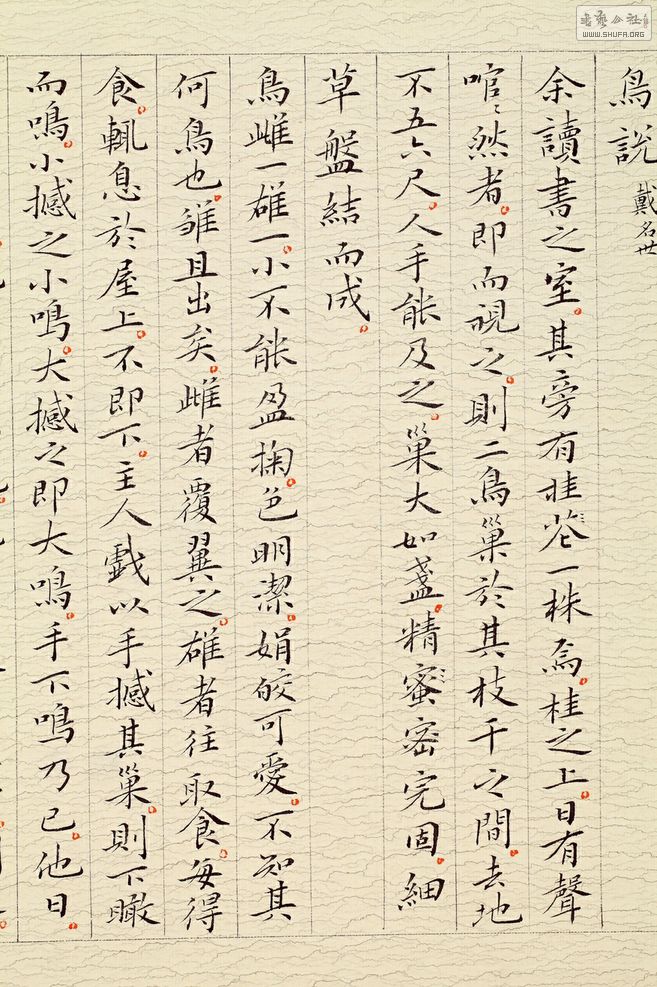 鳥說 戴名世
余讀書之室。其旁有桂花一株焉。桂之上。日有聲
然者。即而視之。則二鳥巢於其枝干之間。去地
不五六尺。人手能及之。巢大如盞。精蜜密完固。細
草盤結而成。
鳥雌一雄一。小不能盈掬。色明潔。娟皎可愛。不知其
何鳥也。雛且出矣。雌者覆翼之。雄者往取食。每得
食。輒息於屋上。不即下。主人戲以手撼其巢。則下瞰
而鳴。小撼之小鳴。大撼之即大鳴。手下鳴乃已。他日。
書藝公社
WWW.SHUFA.ORG